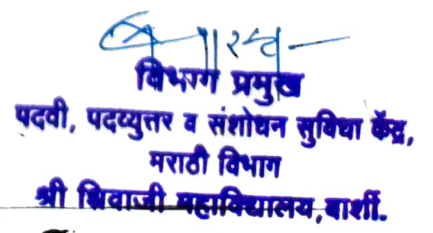 विभाग प्रमुख
पदवी, पदव्युत्तर व संशोधन सुविधा केंद्र,
मराठी विभाग
श्री शिवाजी महाविद्यालय,बार्शी.